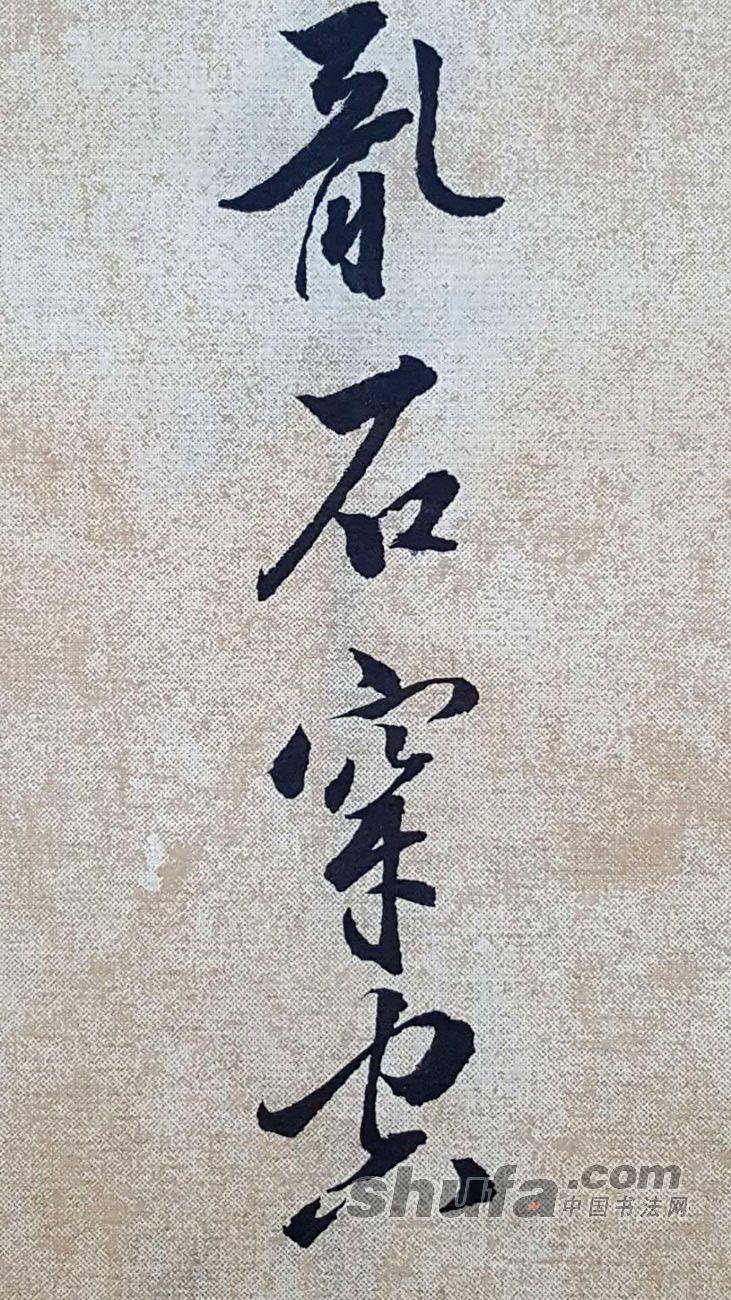 亂石穿空
shufa.com
中国书法网